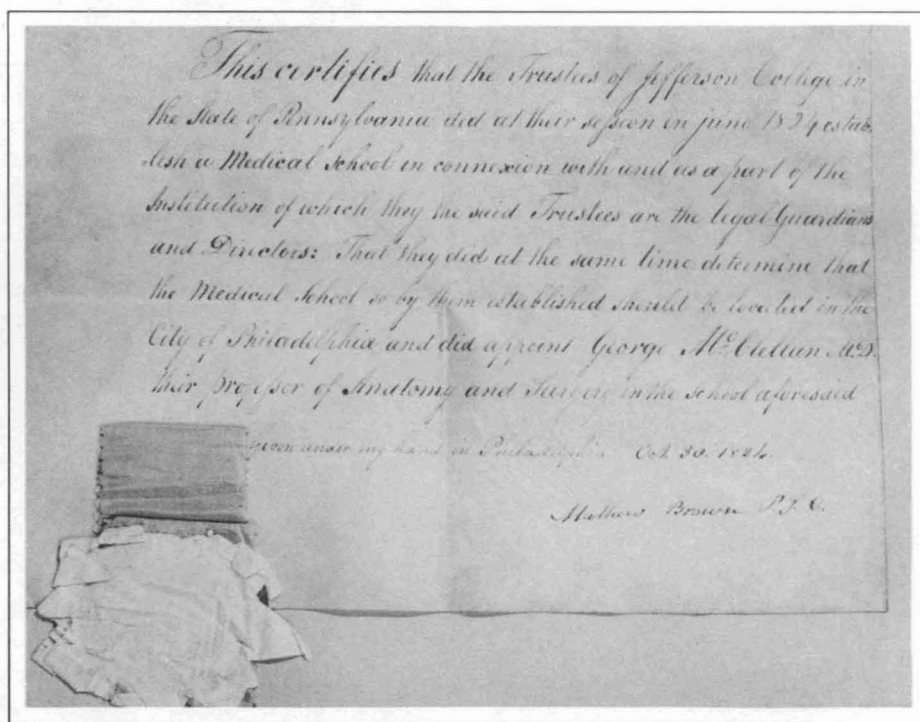 This certifies that the Trustees of Jefferson College in
the State of Pennsylvania did at their session in june 1824 estab-
lish a Medical School in connexion with and as a part of the
Institution of which they the said Trustees are the legal Guardians
and Directors: That they did at the same time determine that
the Medical School so by them established should be located in the
City of Philadelphia and did appoint George McClellan M.D.
their professor of Anatomy and Surgery in the school aforesaid
Given under my hand in Philadelphia Oct. 30. 1824.
Mathew Brown P. J. C.